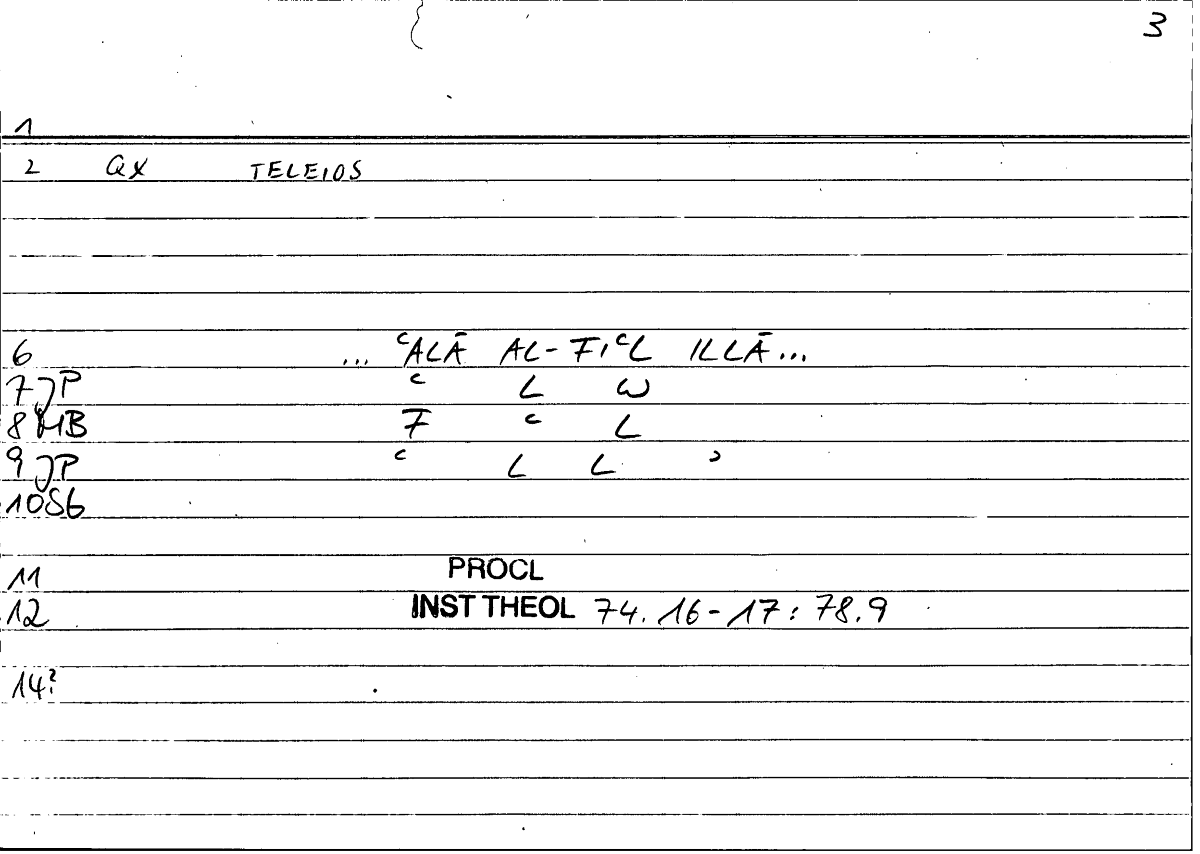 3
1
2 QX TELEIOS
6 ... ʿALĀ AL-FIʿL ILLĀ...
7 JP ʿ L W
8 MB F ʿ L
9 JP ʿ L L ʾ
10 SG
11 PROCL
12 INST THEOL 74.16-17:78.9
14?